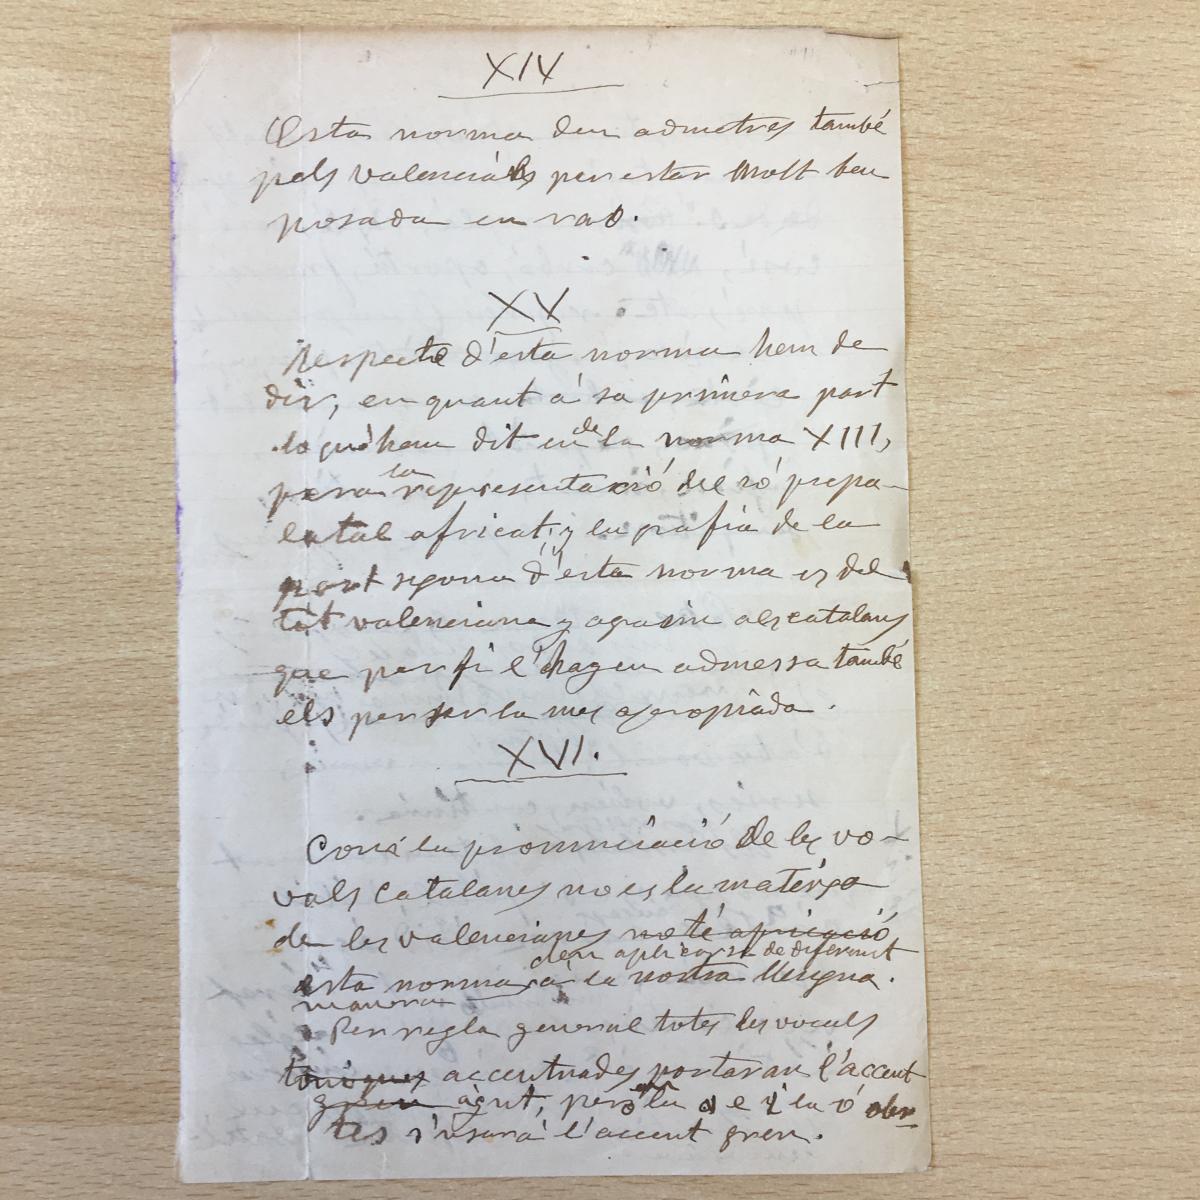 XIV
Esta norma deu admetres també
pels valenciáns per estar molt ben
posada en raó.
XV
Respecte d'esta norma hem de
dir, en quant á sa primera part
lo què hem dit en de la norma XIII,
pera la representació del só prepa-
latal africat; y la grafía de la
part segona d'esta norma es del
tòt valenciana y agraím als catalans
que per fi l'hagen admessa també
els per ser la mes apropiada.
XVI.
Com la pronunciació de les vo-
vals catalanes no es la mateixa
de les valencianes no té apricació
deu aplicarse de diferent
esta norma á la nostra llengua.
manera
Per regla general totes les vocals
toniques accentuades portaran l'accent
greu agut, pero en la a e y la ó ober
tes s'usará l'accent greu.